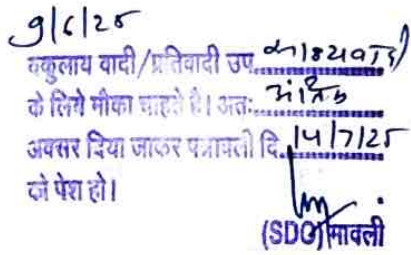 9/6/25
वकुलाय वादी/प्रतिवादी उप. साक्ष्यवादी
के लिये मौका चाहते है। अतः अंतिम
अवसर दिया जाकर पत्रावली दि. 14/7/25
को पेश हो।
(SDO) मावली